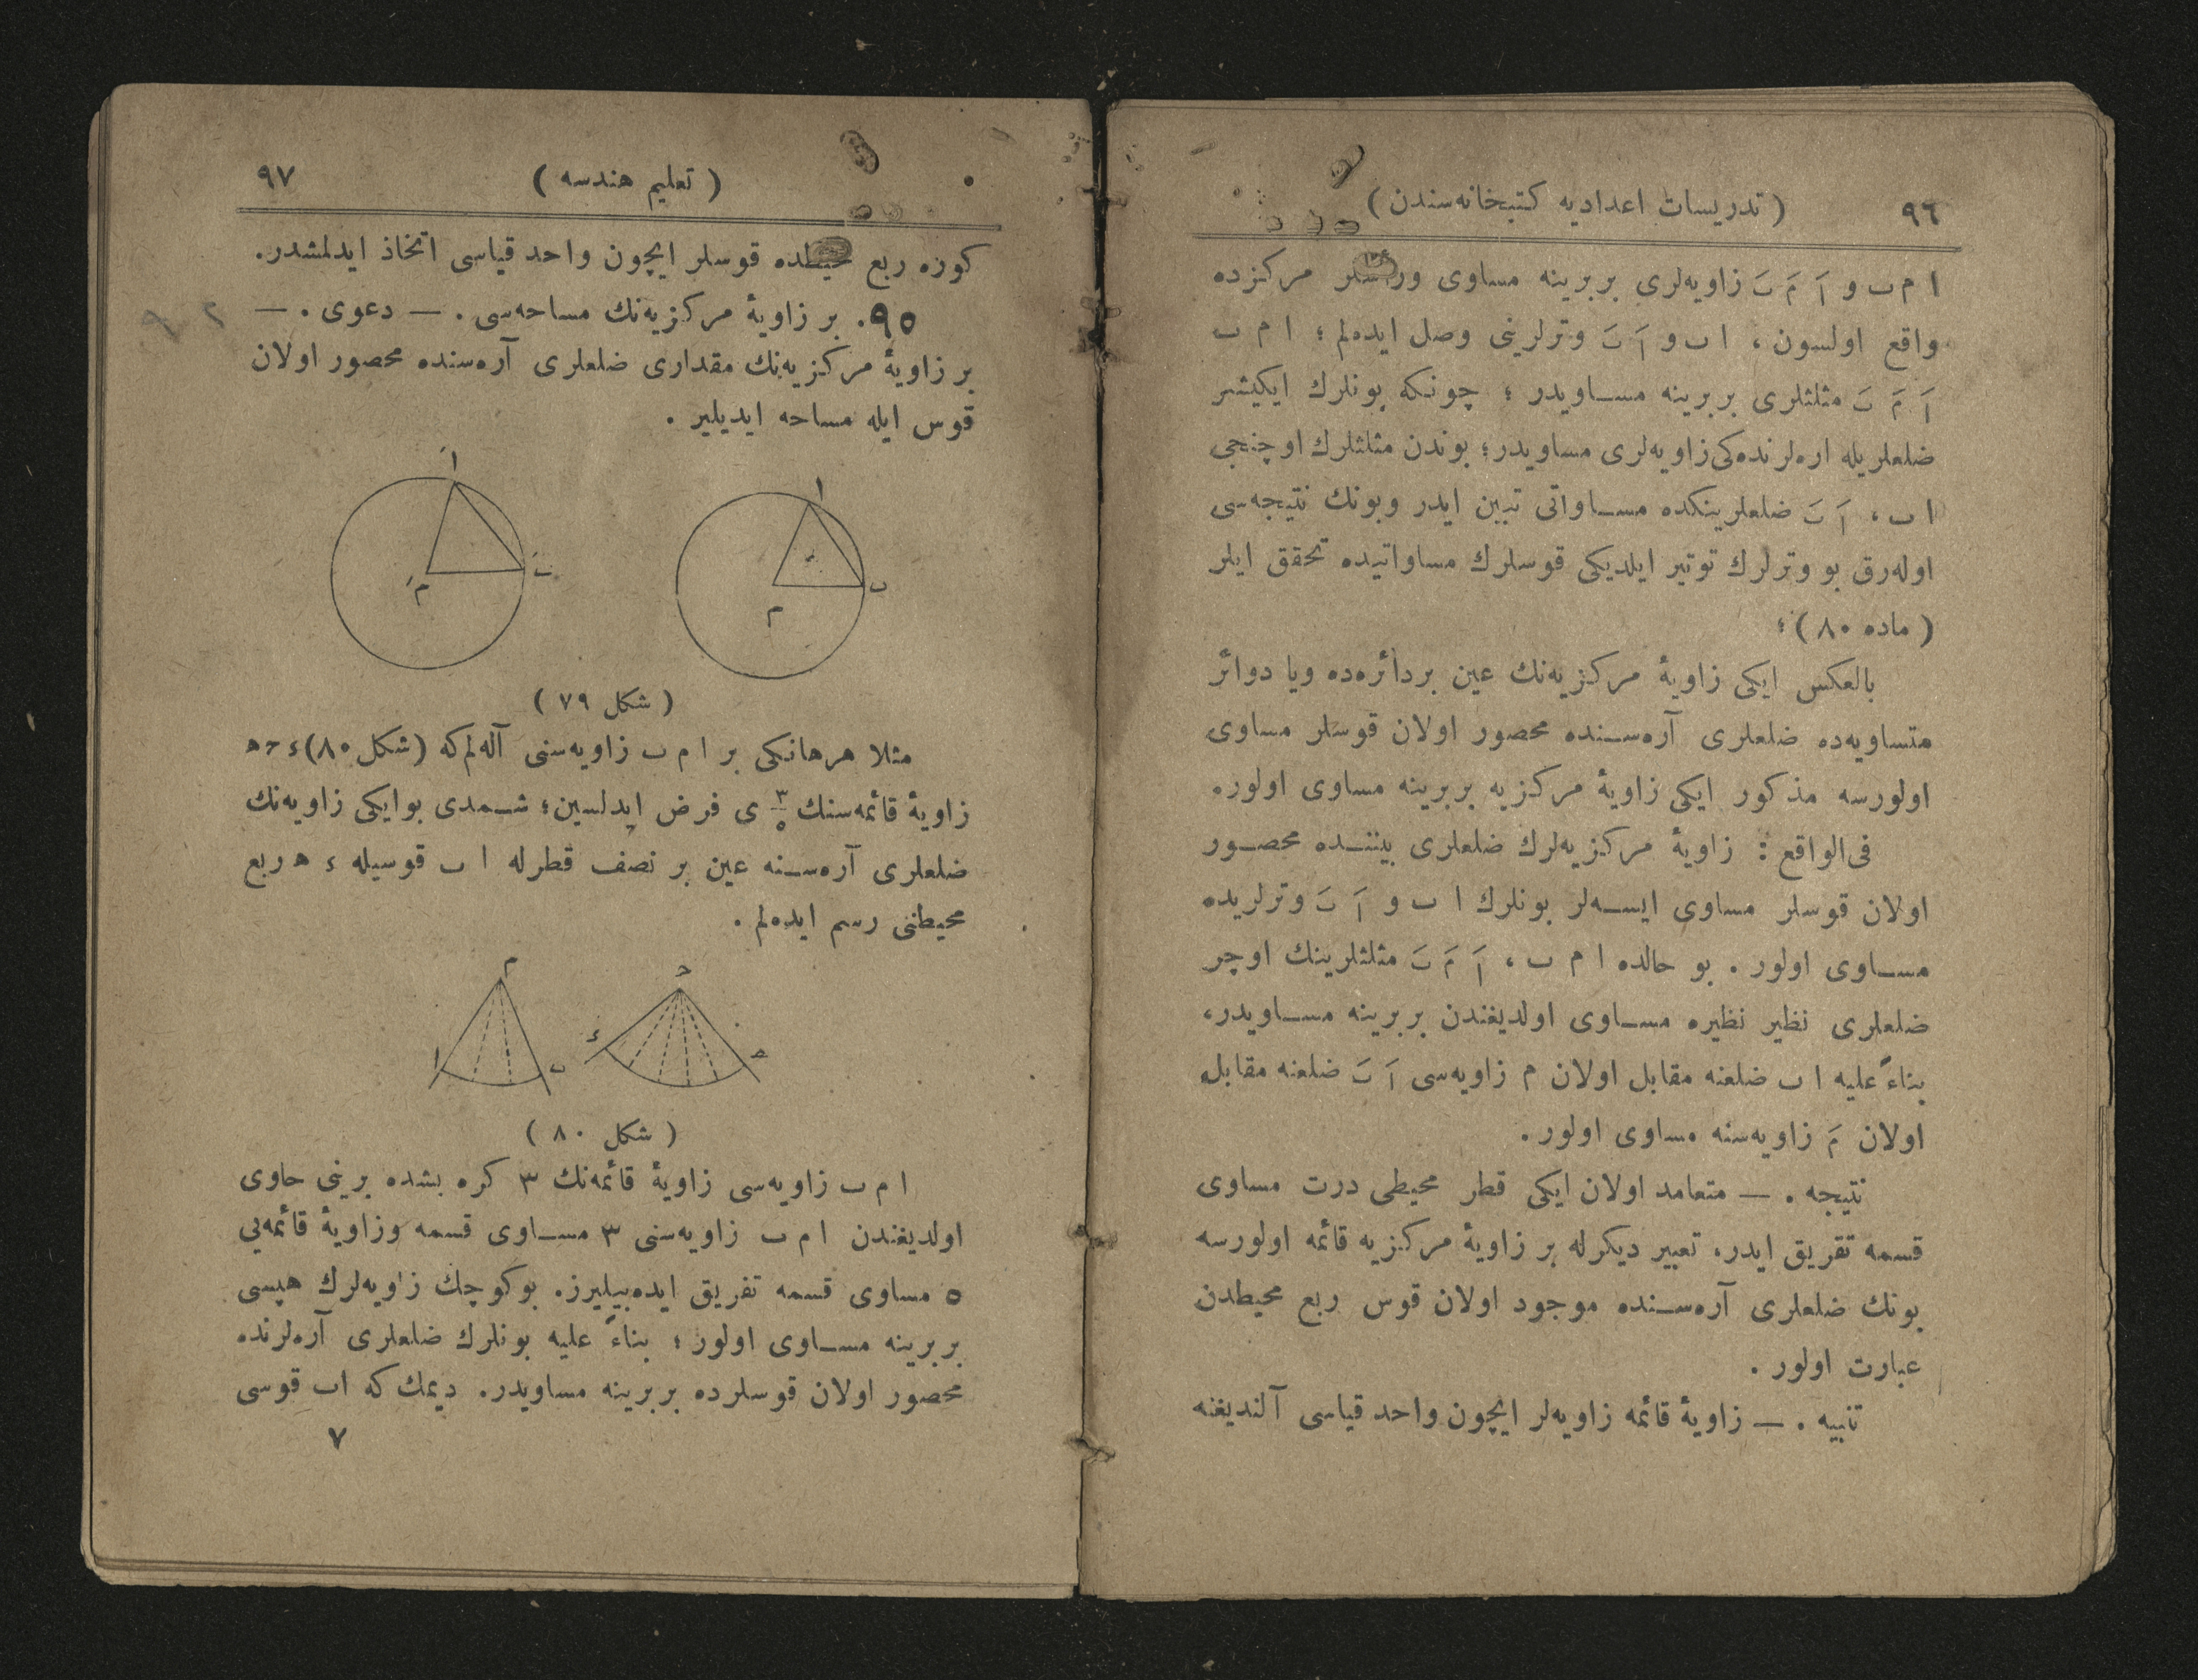 ٩٦
( تدريسات اعداديه كتبخانه‌سندن )
ا م ب و اَ مَ بَ زاويه‌لرى بربرينه مساوى مركزده
واقع اولسون ، ا ب و اَ بَ وترلرينى وصل ايده‌لم ؛ ا م ب
اَ مَ بَ مثلثلرى بربرينه مساويدر ؛ چونكه بونلرك ايكيشر
ضلعلريله اره‌لرنده‌كى زاويه‌لرى مساويدر ؛ بوندن مثلثلرك اوچنجى
ا ب ، اَ بَ ضلعلرينكده مساواتى تبين ايدر وبونك نتيجه‌سى
اوله‌رق بو وترلرك توتير ايلديكى قوسلرك مساواتيده تحقق ايلر
( ماده ٨٠ ) ؛
بالعكس ايكى زاويۀ مركزيه‌نك عين بردائره‌ده ويا دوائر
متساويه‌ده ضلعلرى آره‌سنده محصور اولان قوسلر مساوى
اولورسه مذكور ايكى زاويۀ مركزيه بربرينه مساوى اولور.
فى‌الواقع : زاويۀ مركزيه‌لرك ضلعلرى بيننده محصور
اولان قوسلر مساوى ايسه‌لر بونلرك ا ب و اَ بَ وترلريده
مساوى اولور . بو حالده ا م ب ، اَ مَ بَ مثلثلرينك اوچر
ضلعلرى نظير نظيره مساوى اولديغندن بربرينه مساويدر،
بناءً عليه ا ب ضلعنه مقابل اولان م زاويه‌سى اَ بَ ضلعنه مقابل
اولان مَ زاويه‌سنه مساوى اولور .
نتيجه . — متعامد اولان ايكى قطر محيطى درت مساوى
قسمه تفريق ايدر، تعبير ديكرله بر زاويۀ مركزيه قائمه اولورسه
بونك ضلعلرى آره‌سنده موجود اولان قوس ربع محيطدن
عبارت اولور .
تنبيه . — زاويۀ قائمه زاويه‌لر ايچون واحد قياسى آلنديغنه
( تعليم هندسه )
٩٧
كوره ربع محيطده قوسلر ايچون واحد قياسى اتخاذ ايدلمشدر.
٩٥. بر زاويۀ مركزيه‌نك مساحه‌سى . — دعوى . —
بر زاويۀ مركزيه‌نك مقدارى ضلعلرى آره‌سنده محصور اولان
قوس ايله مساحه ايديلير .
ا
ب
م
اَ
بَ
مَ
( شكل ٧٩ )
مثلا هرهانكى بر ا م ب زاويه‌سنى آله‌لم‌كه (شكل ٨٠) ء ح ه
زاويۀ قائمه‌سنك ٣/٥ ى فرض ايدلسين ؛ شمدى بوايكى زاويه‌نك
ضلعلرى آره‌سنه عين بر نصف قطرله ا ب قوسيله ء ه ربع
محيطنى رسم ايده‌لم .
ح
ء
ه
م
ا
ب
( شكل ٨٠ )
ا م ب زاويه‌سى زاويۀ قائمه‌نك ٣ كره بشده برينى حاوى
اولديغندن ا م ب زاويه‌سنى ٣ مساوى قسمه وزاويۀ قائمه‌يى
٥ مساوى قسمه تفريق ايده‌بيليرز. بوكوچك زاويه‌لرك هپسى
بربرينه مساوى اولور ؛ بناءً عليه بونلرك ضلعلرى آره‌لرنده
محصور اولان قوسلرده بربرينه مساويدر. ديمك كه اب قوسى
٧